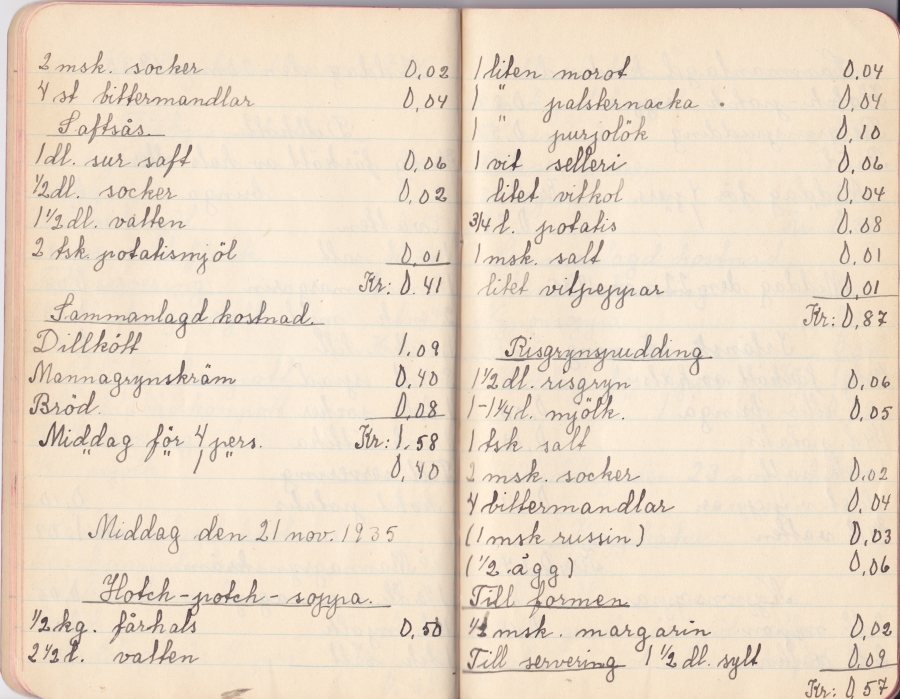 2 msk. socker 0,02
4 st bittermandlar 0,04
Saftsås.
1 dl. sur saft 0,06
½ dl. socker 0,02
1 ½ dl. vatten
2 tsk. potatismjöl 0,01
Kr: 0.41
Sammanlagd kostnad.
Dillkött 1.09
Mannagrynskräm 0,40
Bröd. 0,08
Middag för 4 pers. Kr: 1.58
" " 1 " 0,40
Middag den 21 nov. 1935
Hotch-potch-soppa.
½ kg. fårhals 0,50
2 ½ l. vatten
1 liten morot 0,04
1 " palsternacka . 0,04
1 " purjolök 0,10
1 vit selleri 0,06
litet vitkol 0,04
¾ l. potatis 0.08
1 msk. salt 0,01
litet vitpeppar 0,01
Kr: 0,87
Risgrynspudding
1 ½ dl. risgryn 0,06
1-1 ¼ d. mjölk. 0,05
1 tsk salt
2 msk. socker 0,02
4 bittermandlar 0,04
(1 msk russin) 0,03
(½ ägg) 0,06
Till formen
½ msk. margarin 0,02
Till servering 1 ½ dl. sylt 0,09
Kr: 0,57